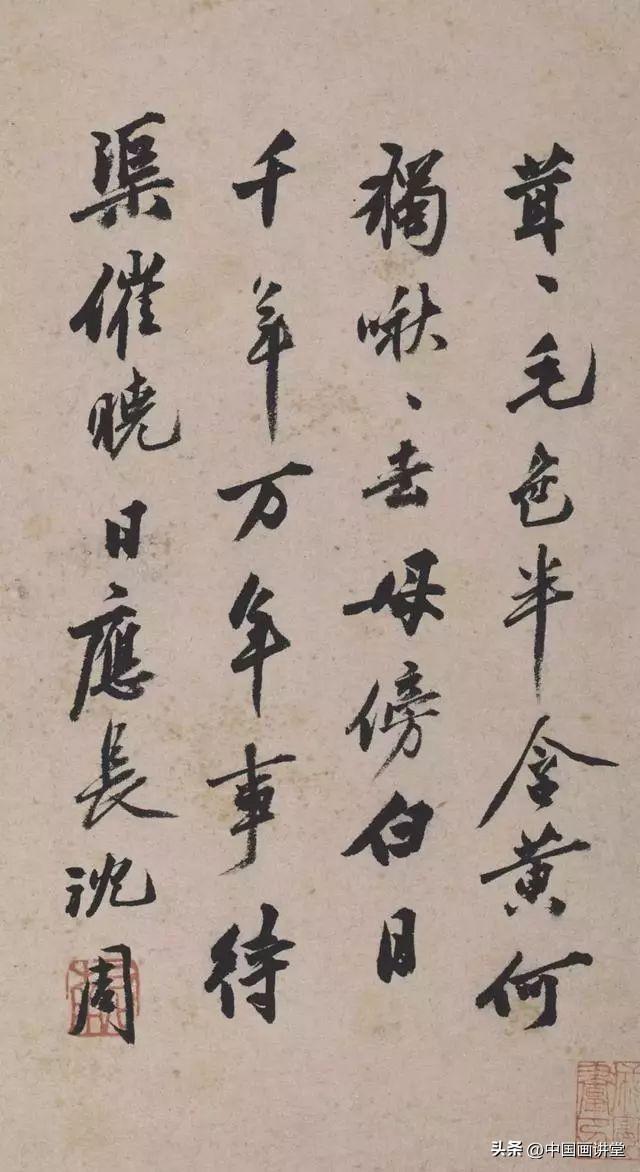 茸、毛色半含黄何
獨啾、去母傍白日
千年万年事待
渠催曉日應長沈周
头条 @中国画讲堂